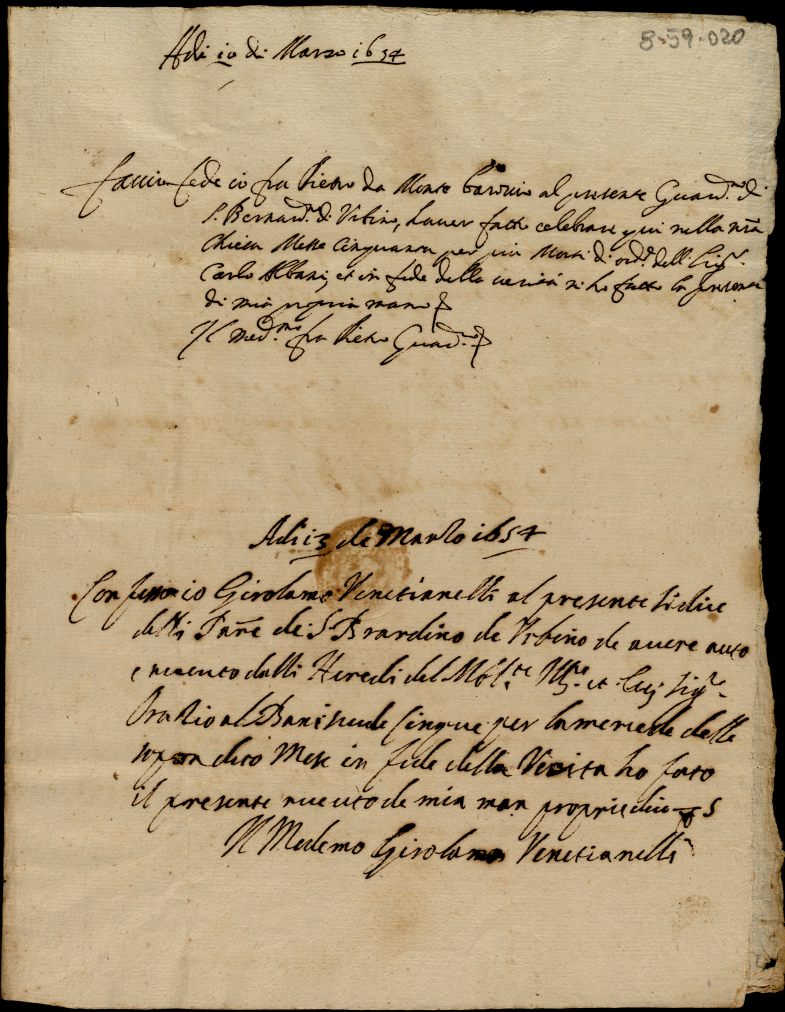 8-59-020
Adi 10 di Marzo 1654
Faccio fede io fra Pietro da Monte Baroccio al presente Guard.no di
S. Bernard.no di Urbino, haver fatto celebrare qui nella nrã
Chiesa Messe Cinquanta per più Morti di ord.e dell Sig.r
Carlo Albani, et in fede della verità n'ho fatto la presente
di mia propria mano
Il med.mo fra Pietro Guard.no
Adi 13 de Marzo 1654
Confesso io Girolamo Venetianelli al presente Sidico
delli Padre de S Brardino de Urbino de avere auto
e receuto dalli Heredi del Molto et Sig.re
Oratio al Bani scude Cinque per la mercede delle
sopra dico Mese in fide della Verita ho fato
il presente riceuto de mia man propria dico 5
Il Medemo Girolamo Venetianelli